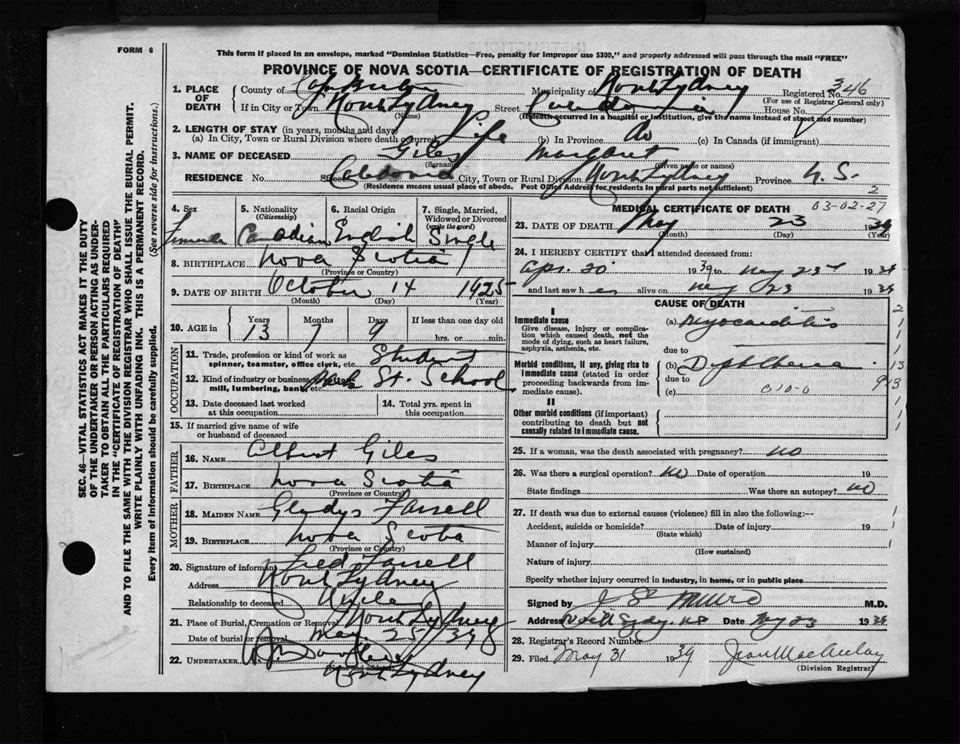 FORM 6
This form if placed in an envelope, marked "Dominion Statistics—Free, penalty for improper use $300," and properly addressed will pass through the mail "FREE"
PROVINCE OF NOVA SCOTIA—CERTIFICATE OF REGISTRATION OF DEATH
SEC. 46—VITAL STATISTICS ACT MAKES IT THE DUTY
OF THE UNDERTAKER OR PERSON ACTING AS UNDER-
TAKER TO OBTAIN ALL THE PARTICULARS REQUIRED
IN THE "CERTIFICATE OF REGISTRATION OF DEATH"
AND TO FILE THE SAME WITH THE DIVISION REGISTRAR WHO SHALL ISSUE THE BURIAL PERMIT.
WRITE PLAINLY WITH UNFADING INK. THIS IS A PERMANENT RECORD.
Every item of information should be carefully supplied. (See reverse side for instructions.)
1. PLACE OF DEATH County of Cape Breton Municipality of North Sydney Registered No. 346
(For use of Registrar General only)
If in City or Town North Sydney Street House No.
(Name) (If death occurred in a hospital or institution, give the name instead of street and number)
2. LENGTH OF STAY (in years, months and days)
(a) In City, Town or Rural Division where death occurred Life (b) In Province do (c) In Canada (if immigrant)
3. NAME OF DECEASED Giles Margaret
(Surname) (Given name or names)
RESIDENCE No. Street Caledonia City, Town or Rural Division North Sydney Province N.S.
(Residence means usual place of abode. Post Office Address for residents in rural parts not sufficient)
2
4. Sex 5. Nationality (Citizenship) 6. Racial Origin 7. Single, Married, Widowed or Divorced (write the word)
Female Canadian English Single
8. BIRTHPLACE Nova Scotia
(Province or Country)
9. DATE OF BIRTH October 14 1925
(Month) (Day) (Year)
10. AGE in Years Months Days If less than one day old
13 7 9 hrs. or min.
OCCUPATION
11. Trade, profession or kind of work as spinner, teamster, office clerk, etc. Student
12. Kind of industry or business, mill, lumbering, bank, etc. St. School
13. Date deceased last worked at this occupation 14. Total yrs. spent in this occupation
15. If married give name of wife or husband of deceased
FATHER
16. NAME Albert Giles
17. BIRTHPLACE Nova Scotia
(Province or Country)
MOTHER
18. MAIDEN NAME Gladys Farrell
19. BIRTHPLACE Nova Scotia
(Province or Country)
20. Signature of informant Fred Farrell
Address North Sydney
Relationship to deceased Uncle
21. Place of Burial, Cremation or Removal North Sydney
Date of burial or removal May 25/39
22. UNDERTAKER
North Sydney
MEDICAL CERTIFICATE OF DEATH 03-02-27
23. DATE OF DEATH May 23 1939
(Month) (Day) (Year)
24. I HEREBY CERTIFY that I attended deceased from:
Apr. 20 1939 to May 23rd 1939
and last saw her alive on May 23 1939
CAUSE OF DEATH
I
Immediate cause (a) Myocarditis
Give disease, injury or complication which caused death, not the mode of dying, such as heart failure, asphyxia, asthenia, etc.
due to
Morbid conditions, if any, giving rise to immediate cause (stated in order proceeding backwards from immediate cause). (b) Diphtheria
due to
(c) 010-0
II
Other morbid conditions (if important) contributing to death but not causally related to immediate cause.
25. If a woman, was the death associated with pregnancy? no
26. Was there a surgical operation? no Date of operation 19
State findings Was there an autopsy? no
27. If death was due to external causes (violence) fill in also the following:—
Accident, suicide or homicide? Date of injury 19
(State which)
Manner of injury
(How sustained)
Nature of injury
Specify whether injury occurred in industry, in home, or in public place
Signed by Munro M.D.
Address Date May 23 1939
28. Registrar's Record Number
29. Filed May 31 1939 Jean MacAulay
(Division Registrar)